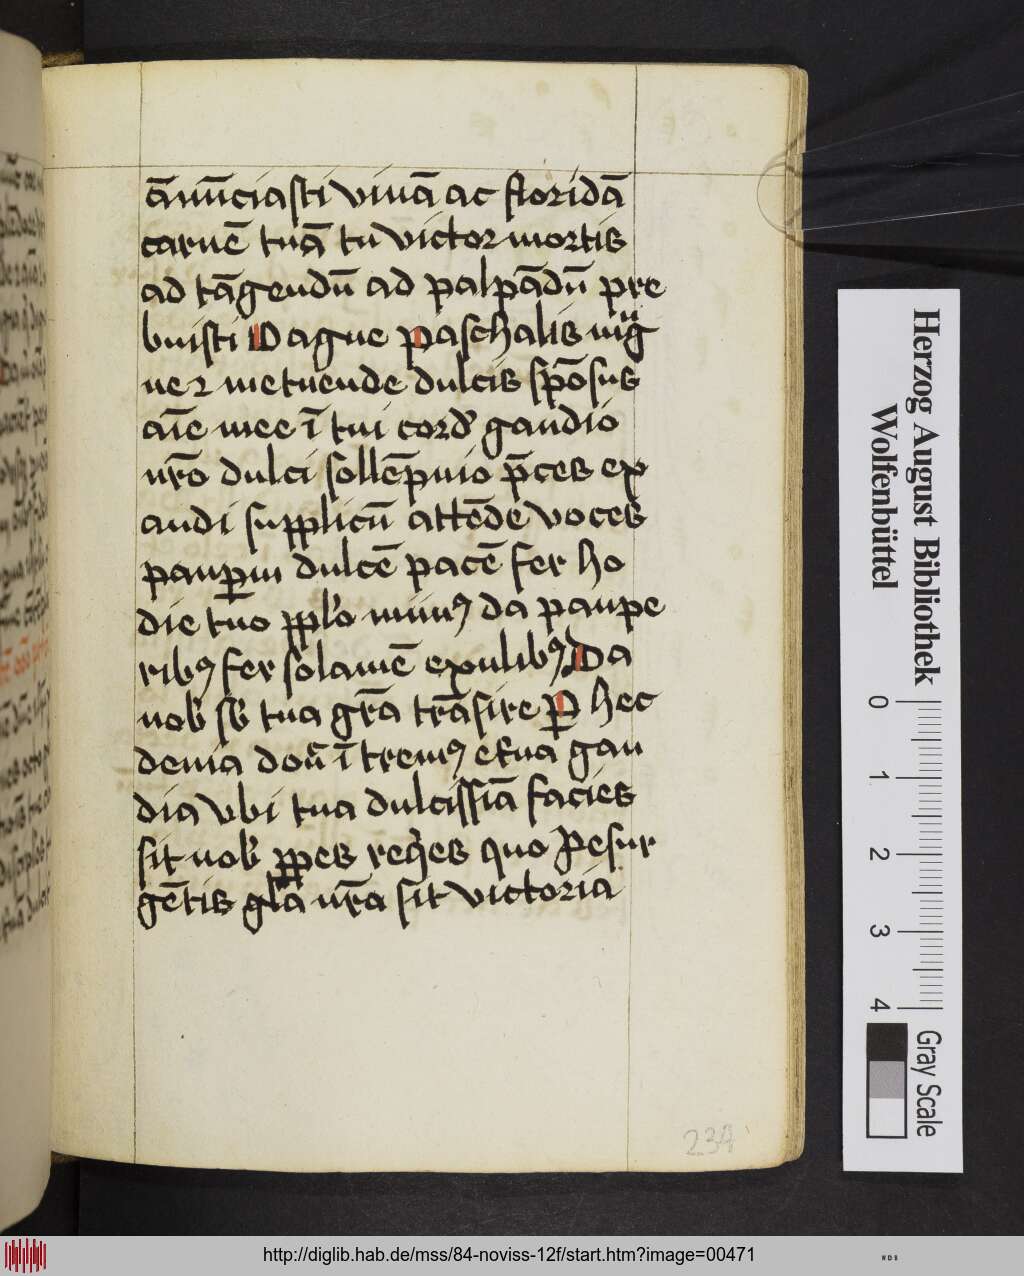 ānūciasti vivā ac floridā
carnē tuā tu victor mortis
ad tāgendū ad palpādū pre
buisti O agne paschalis iug̃
ue ⁊ metuende dulcis spōsus
aīe mee ī tui cordꝭ gaudio
nr̄o dulci sollēpnio p̄ces ex
audi supplicū attēde voces
paupꝝ dulcē pacē fer ho
die tuo pplo munꝰ da paupe
ribꝰ fer solamē exulibꝰ Da
nobꝭ sꝭ tua gr̄a trāsire Ꝑ hec
denia donū ītremꝰ et̄na gau
dia vbi tua dulcissīa facies
sit nobꝭ ꝑpes reqꝭes quo Resur
gētis glā nr̄a sit victoria
234
Herzog August Bibliothek
Wolfenbüttel
0 1 2 3 4
Gray Scale
http://diglib.hab.de/mss/84-noviss-12f/start.htm?image=00471